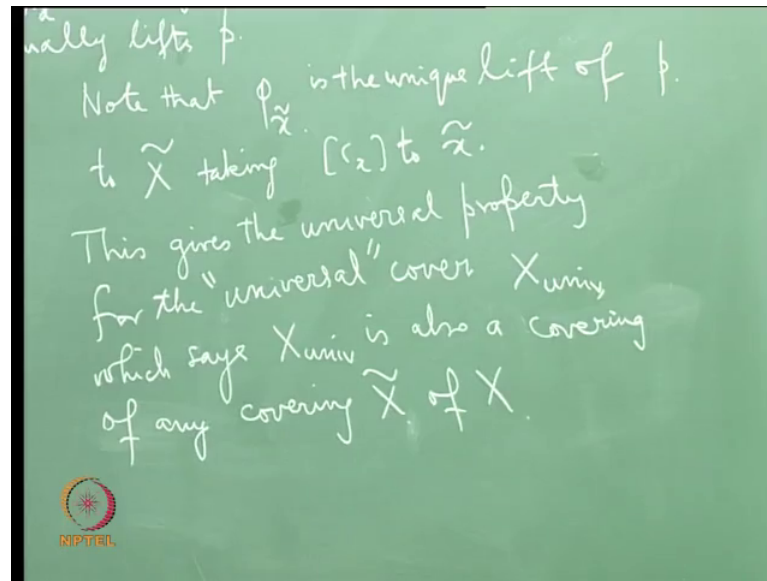 ually lifts p.
Note that φ_x̃ is the unique lift of p.
to X̃ taking [c_x] to x̃.
This gives the universal property
for the "universal" cover X_univ,
which says X_univ is also a covering
of any covering X̃ of X.
NPTEL